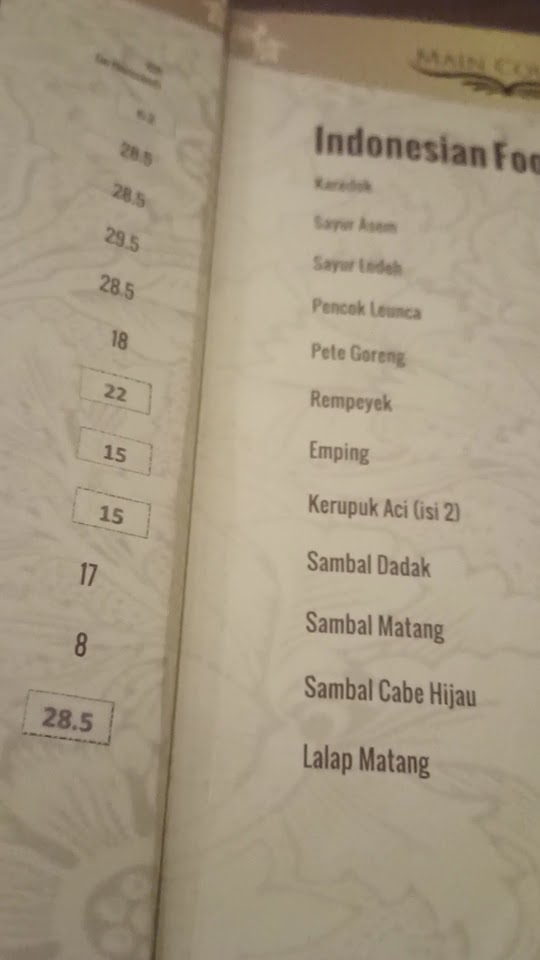 28.5
28.5
29.5
28.5
18
22
15
15
17
8
28.5
MAIN
Indonesian
Karedok
Sayur Asem
Sayur Lodeh
Pencok Leunca
Pete Goreng
Rempeyek
Emping
Kerupuk Aci (isi 2)
Sambal Dadak
Sambal Matang
Sambal Cabe Hijau
Lalap Matang